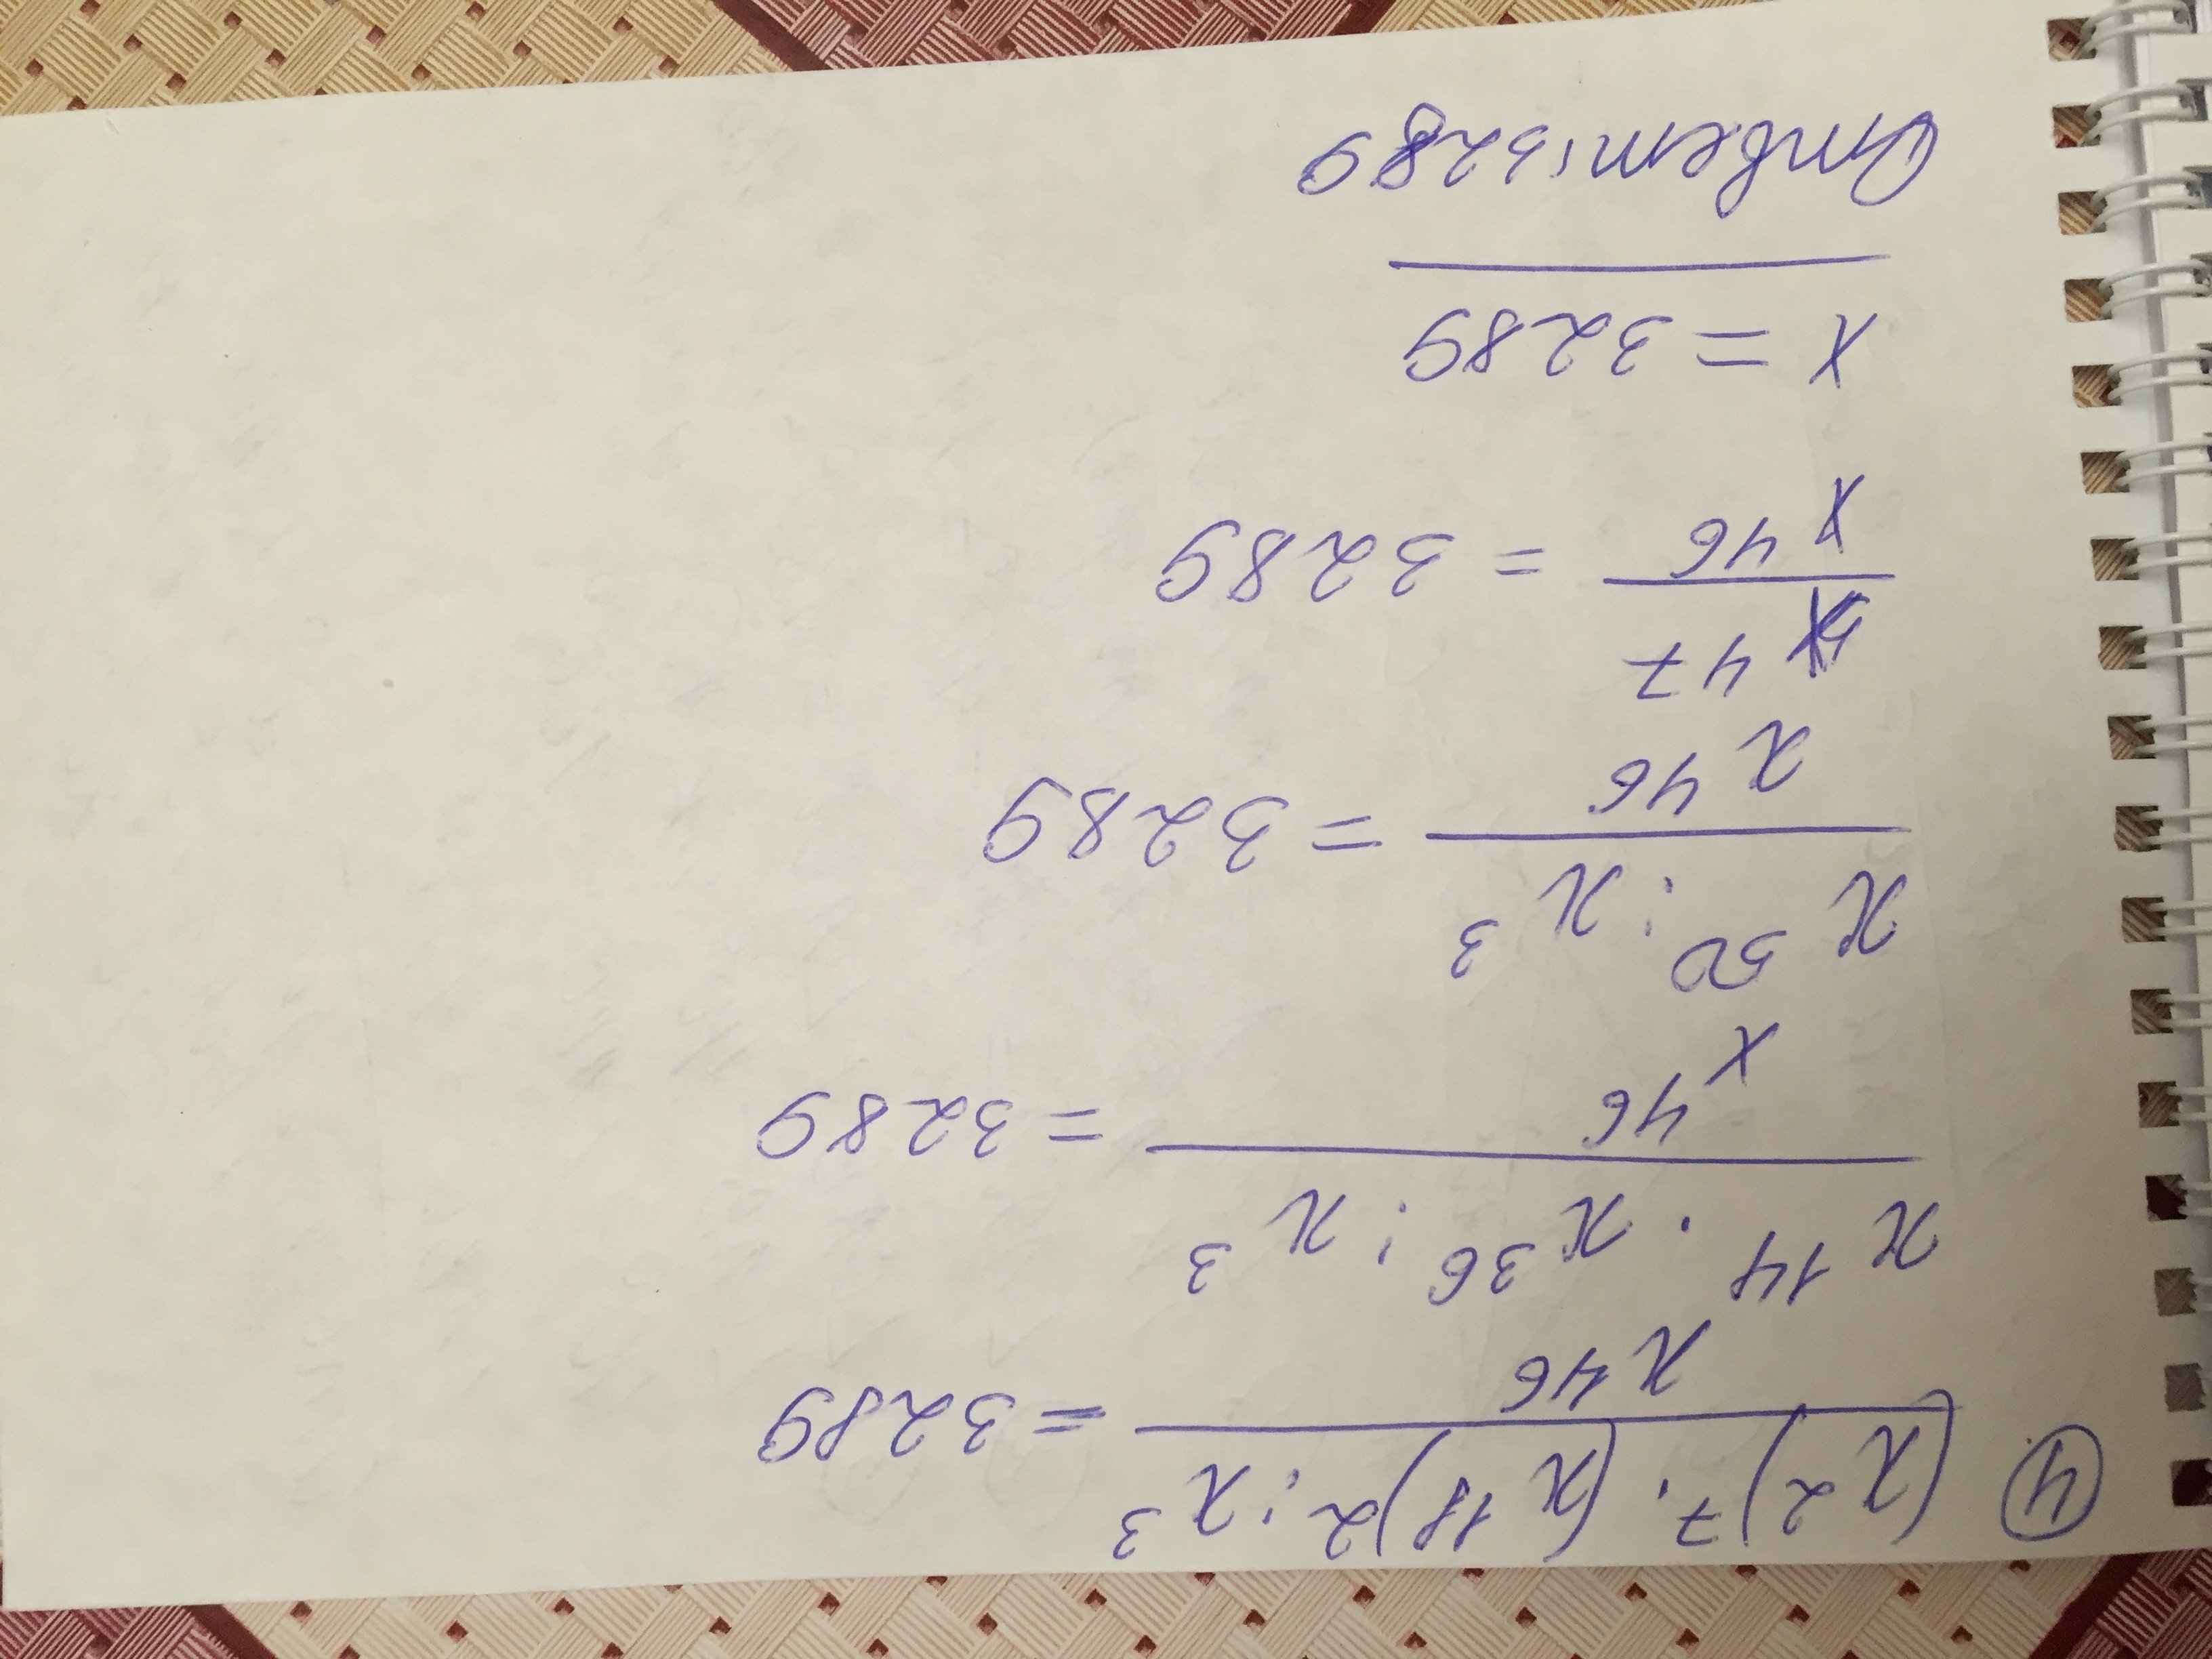 ④ (x²)⁷ · (x¹⁸)² : x³ / x⁴⁶ = 3289
x¹⁴ · x³⁶ : x³ / x⁴⁶ = 3289
x⁵⁰ : x³ / x⁴⁶ = 3289
x⁴⁷ / x⁴⁶ = 3289
x = 3289
Ответ: 3289